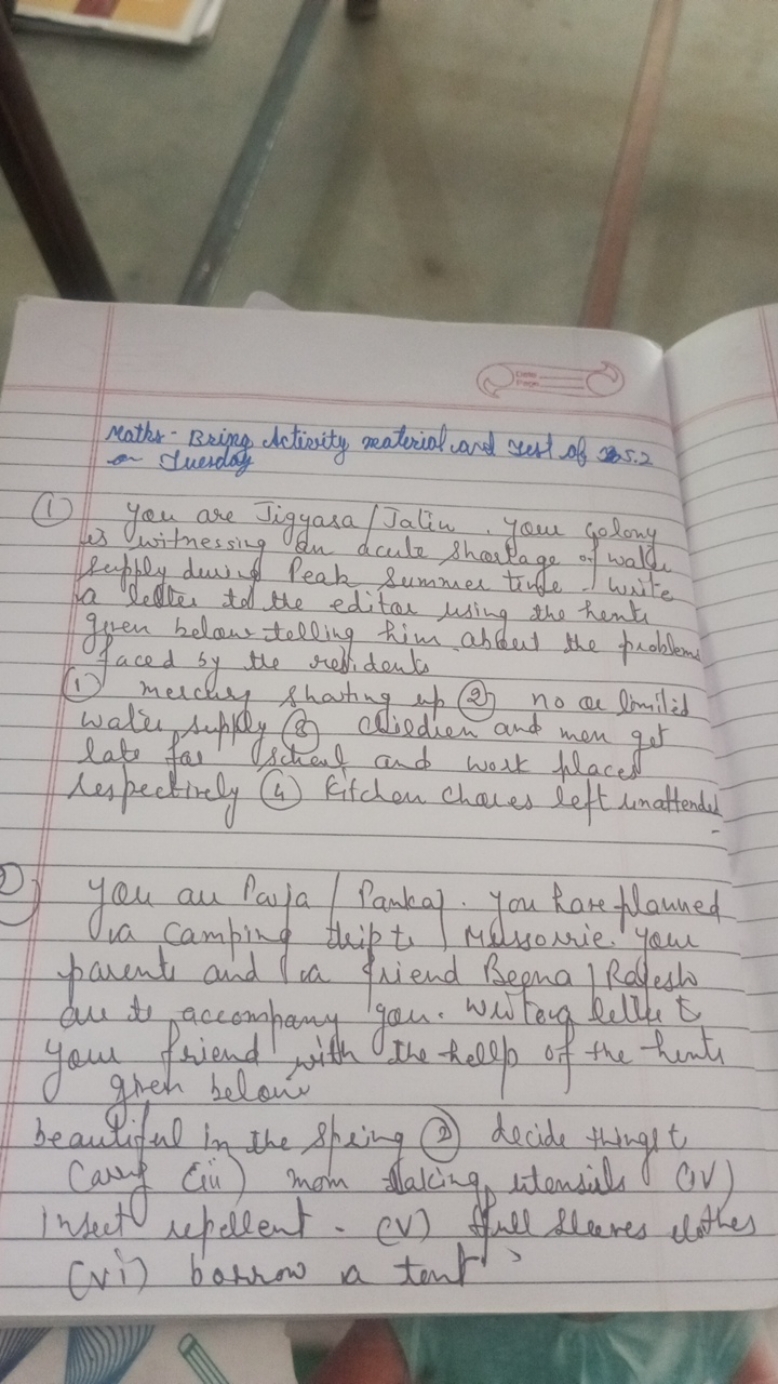 Date
Page
Maths - Bring Activity material and test of 5.2
on Tuesday
① You are Jigyasa / Jatin. Your colony
is witnessing an acute shortage of water
supply during Peak summer time. write
a letter to the editor using the hints
given below telling him about the problems
faced by the residents
① mercury shooting up ② no or limited
water supply ③ children and men get
late for school and work places
respectively ④ Kitchen chores left unattended
② You are / Pankaj. You have planned
a camping trip to Mussorrie. Your
parents and a friend Beena / Rajesh
are to accompany you. write a letter to
your friend with the hellp of the hints
given below
beautiful in the spring ② decide things to
carry (iii) mom taking utensils (iv)
insect repellent - (v) full sleeves clothes
(vi) borrow a tent